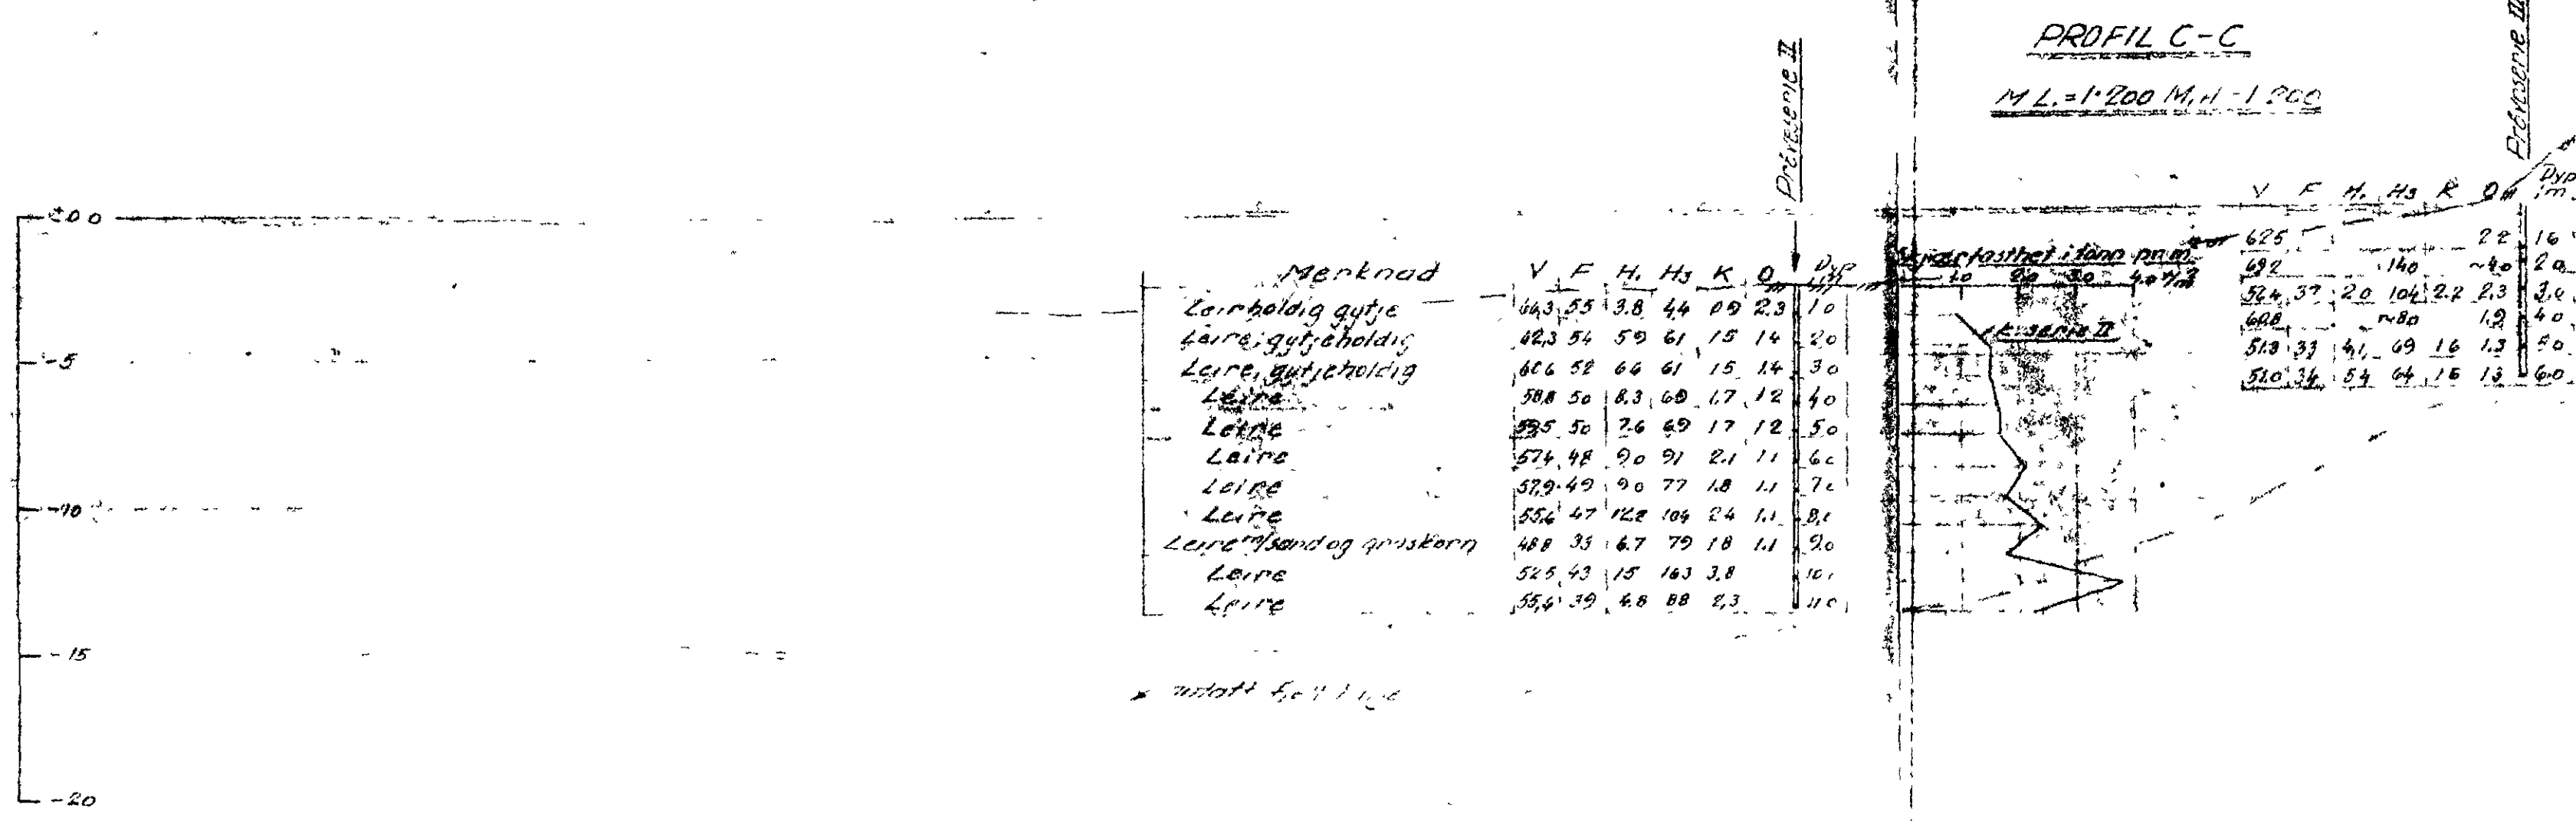 PROFIL C-C
M L.=1:200 M.H=1:200
Prøveserie II
Prøveserie III
±0.0
-5
-10
-15
-20
Merknad V F H1 H3 K O Dyp
Leirholdig gytje 64,3 55 3.8 44 0.9 2.3 1.0
Leire, gytjeholdig 62,3 54 59 61 1.5 1.4 2.0
Leire, gytjeholdig 60.6 52 66 61 1.5 1.4 3.0
Leire 58.8 50 8.3 60 1.7 1.2 4.0
Leire 59.5 50 7.6 69 1.7 1.2 5.0
Leire 57.4 48 9.0 91 2.1 1.1 6.0
Leire 57.9 49 9.0 77 1.8 1.1 7.0
Leire 55.6 47 12.2 104 2.4 1.1 8.0
Leire m/sand og gruskorn 48.8 33 6.7 79 1.8 1.1 9.0
Leire 52.5 43 15 163 3.8 10.
Leire 55,6 39 6.8 88 2,3 11.0
Skjærfasthet i tonn pr. m²
1.0 2.0 3.0 4.0 t/m²
K-serie II
V F H1 H3 K O Dyp i m
62.5 2.2 1.6
69.2 140 ~4.0 2.0
52.4 37 2.0 104 2.2 2.3 3.0
60.8 ~80 1.9 4.0
51.3 33 41 69 1.6 1.3 5.0
51.0 34 54 64 1.5 1.3 6.0
antatt fjell